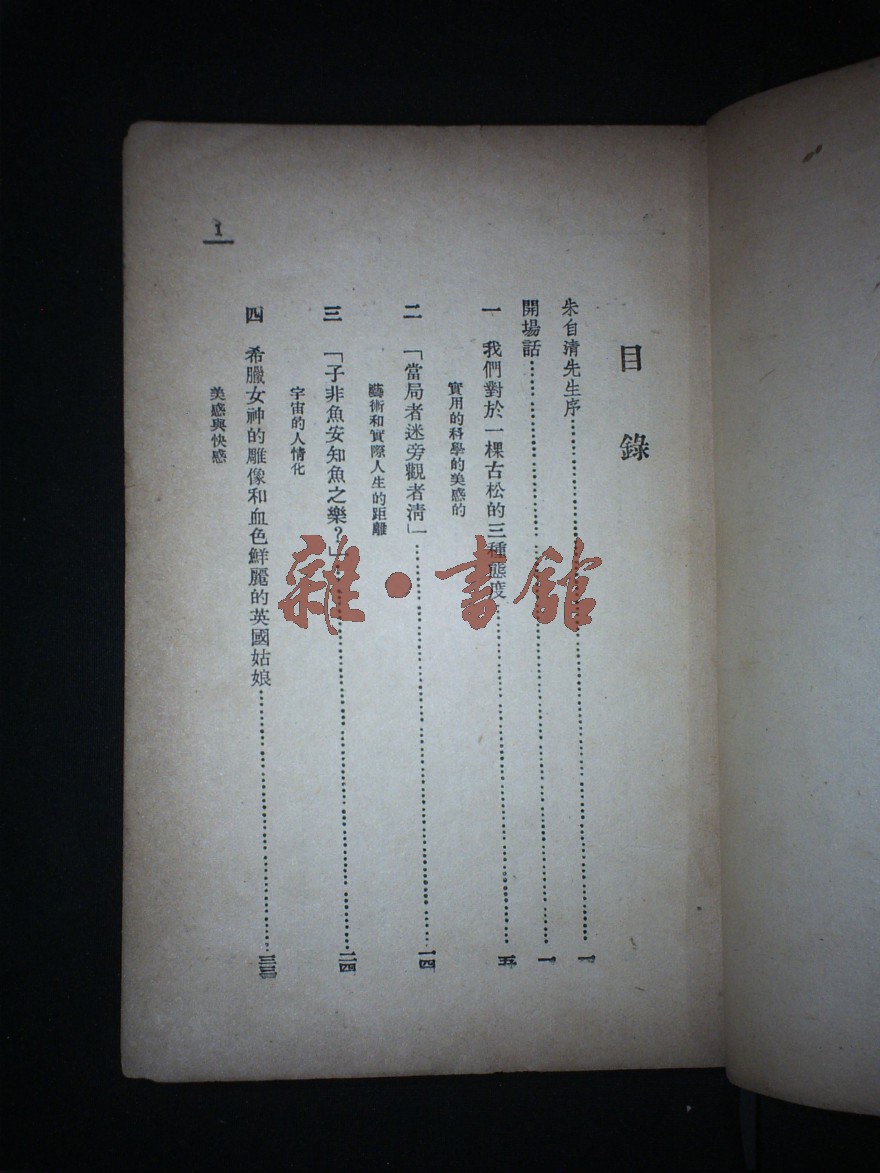 目錄
朱自清先生序……一
開場話……一
一 我們對於一棵古松的三種態度……五
實用的科學的美感的
二 「當局者迷旁觀者清」……一四
藝術和實際人生的距離
三 「子非魚安知魚之樂？」……二四
宇宙的人情化
四 希臘女神的雕像和血色鮮麗的英國姑娘……三三
美感與快感
1
雜·書館